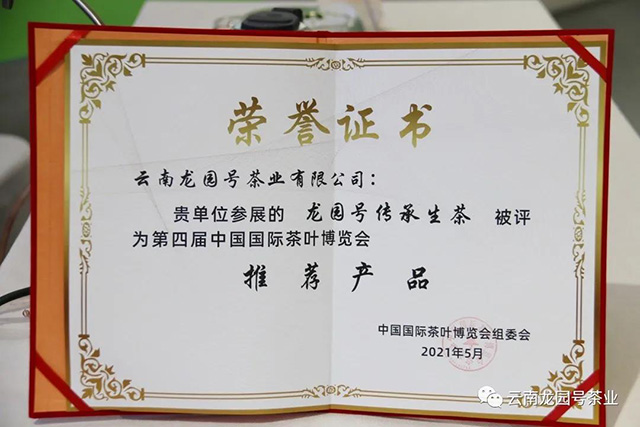 荣誉证书
云南龙园号茶业有限公司：
贵单位参展的 龙园号传承生茶 被评
为第四届中国国际茶叶博览会
推荐产品
中国国际茶叶博览会组委会
2021年5月
云南龙园号茶业